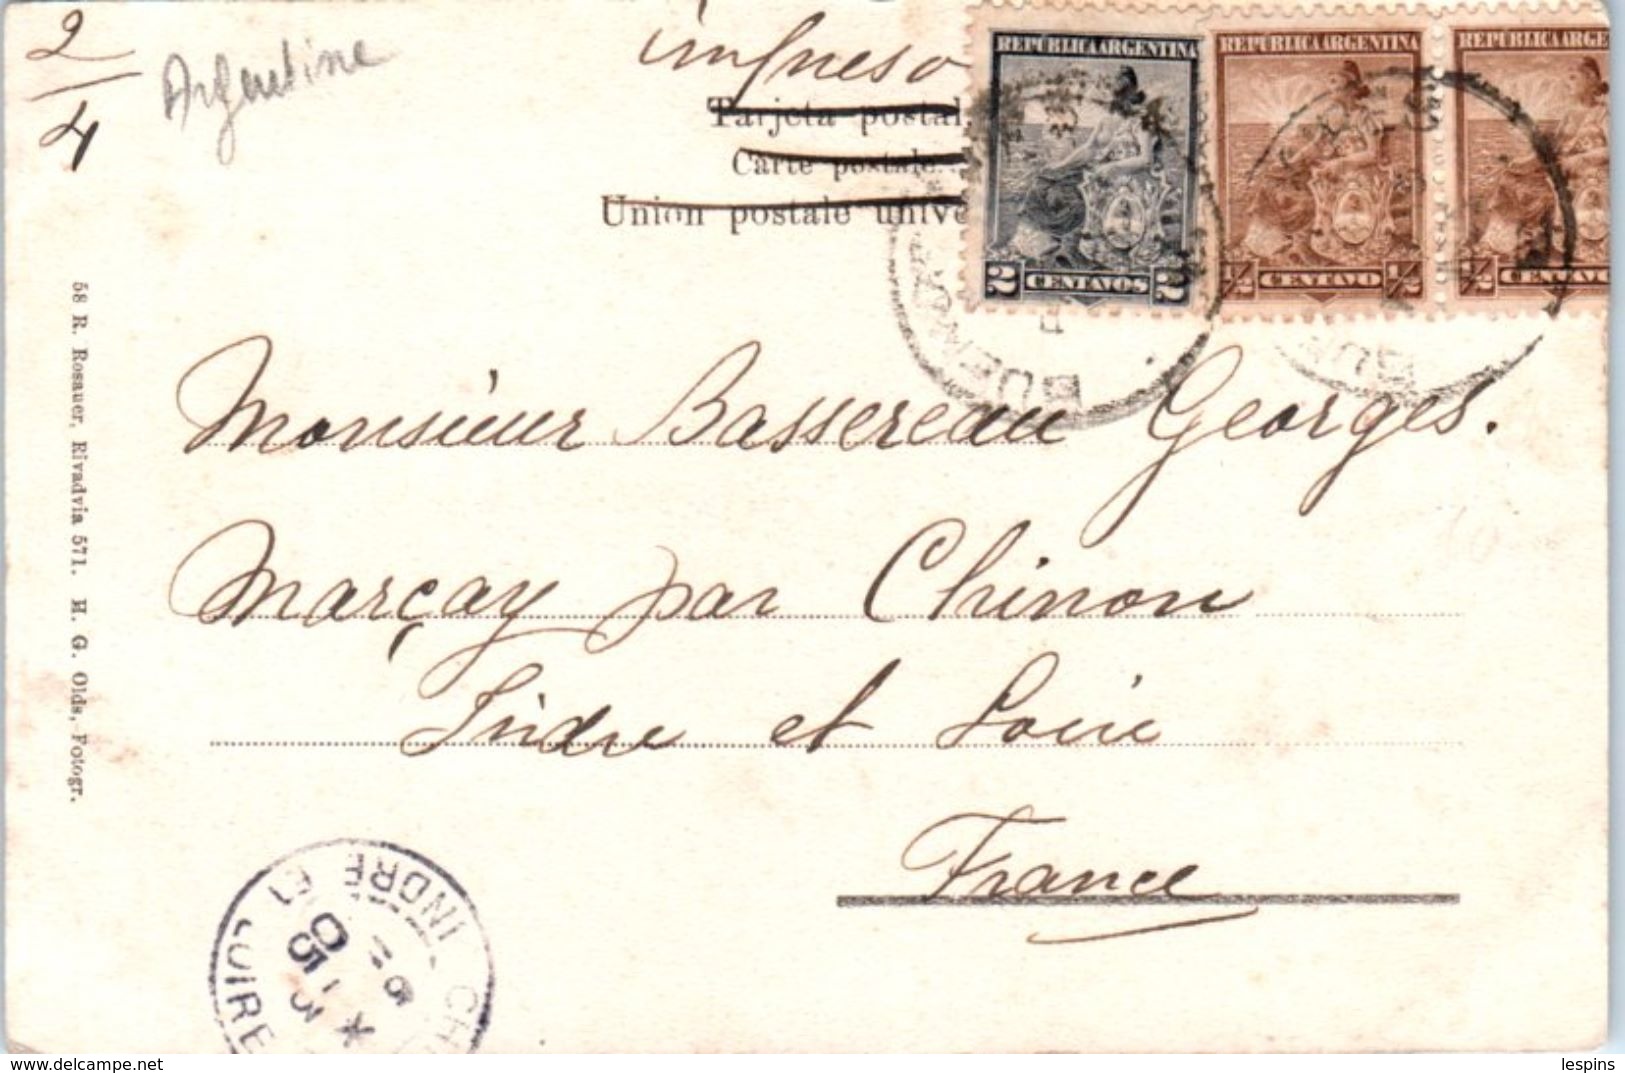 2/4
Argentine
impreso
Tarjeta postal
Carte postale
Union postale unive
REPUBLICA ARGENTINA
2 CENTAVOS 2
REPUBLICA ARGENTINA
1/2 CENTAVO 1/2
REPUBLICA ARGE
1/2 CENTAV
BUENOS
BUE
Monsieur Bassereau Georges.
Marçay par Chinon
Indre et Loire
France
58 R. Rosauer, Rivadvia 571. H. G. Olds, Fotogr.
INDRE ET LOIRE
lespins